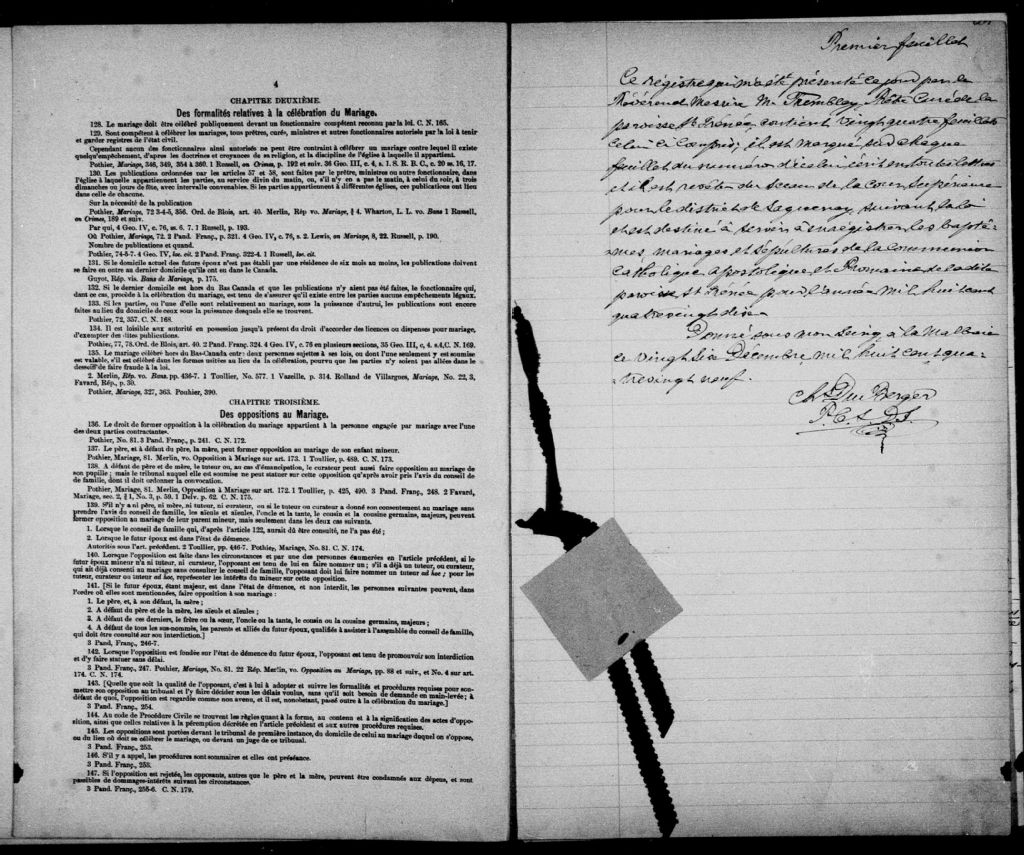 4
CHAPITRE DEUXIÈME.
Des formalités relatives à la célébration du Mariage.
128. Le mariage doit être célébré publiquement devant un fonctionnaire compétent reconnu par la loi. C. N. 165.
129. Sont compétents à célébrer les mariages, tous prêtres, curés, ministres et autres fonctionnaires autorisés par la loi à tenir
et garder registres de l'état civil.
Cependant aucun des fonctionnaires ainsi autorisés ne peut être contraint à célébrer un mariage contre lequel il existe
quelqu'empêchement, d'après les doctrines et croyances de sa religion, et la discipline de l'église à laquelle il appartient.
Pothier, Mariage, 346, 349, 354 à 360. 1 Russell, on Crimes, p. 192 et suiv. 36 Geo. III, c. 4, s. 1. S. R. B. C., c. 20 s. 16, 17.
130. Les publications ordonnées par les articles 57 et 58, sont faites par le prêtre, ministres ou autre fonctionnaire, dans
l'église à laquelle appartiennent les parties, au service divin du matin, ou, s'il n'y en a pas le matin, à celui du soir, à trois
dimanches ou jours de fête, avec intervalle convenables. Si les parties appartiennent à différentes églises, ces publications ont lieu
dans celle de chacune.
Sur la nécessité de la publication
Pothier, Mariage, 72 3-4-5, 356. Ord. de Blois, art. 40. Merlin, Rép vo. Mariage, § 4. Wharton, L. L. vo. Bans 1 Russell,
on Crimes, 189 et suiv.
Par qui, 4 Geo. IV, c. 76, ss. 6. 7. 1 Russell, p. 193.
Où Pothier, Mariage, 72. 2 Pand. Franç., p. 321. 4 Geo. IV, c. 76, s. 2. Lewis, on Mariage, 8, 22. Russell, p. 190.
Nombre de publications et quand.
Pothier, 74-5-7. 4 Geo. IV, loc. cit. 2 Pand. Franç. 322-4. 1 Russell, loc. cit.
131. Si le domicile actuel des futurs époux n'est pas établi par une résidence de six mois au moins, les publications doivent
se faire en outre au dernier domicile qu'ils ont en dans le Canada.
Guyot, Rép. vis. Bans de Mariage, p. 175.
132. Si le dernier domicile est hors du Bas Canada et que les publications n'y aient pas été faites, le fonctionnaire qui,
dans ce cas, procède à la célébration du mariage, est tenu de s'assurer qu'il existe entre les parties aucuns empêchements légaux.
133. Si les parties, ou l'une d'elle sont relativement au mariage, sous la puissance d'autrui, les publications sont encore
faites au lieu du domicile de ceux sous la puissance desquels elle se trouvent.
Pothier, 72, 357. C. N. 168.
134. Il est loisible aux autorité en possession jusqu'à présent du droit d'accorder des licences ou dispenses pour mariage,
d'exempter des dites publications.
Pothier, 77, 78. Ord. de Blois, art. 40. 2 Pand. Franç. 324. 4 Geo. IV, c. 76 en plusieurs sections, 35 Geo. III, c. 4. s.4, C. N. 169.
135. Le mariage célébré hors du Bas-Canada entre deux personnes sujettes à ses lois, ou dont l'une seulement y est soumise
est valable, s'il est célébré dans les formes usitées au lieu de la célébration, pourvu que les parties n'y soient pas allées dans le
dessein de faire fraude à la loi.
2. Merlin, Rép. vo. Bans. pp. 436-7. 1 Toullier, No. 577. 1 Vazeille. p. 314. Rolland de Villargues, Mariage, No. 22, 3,
Favard, Rép., p. 30.
Pothier, Mariage, 327, 363. Pouhier, 390.
CHAPITRE TROISIÈME.
Des oppositions au Mariage.
136. Le droit de former opposition à la célébration du mariage appartient à la personne engagée par mariage avec l'une
des deux parties contractantes.
Pothier, No. 81. 3 Pand. Franç., p. 241. C. N. 172.
137. Le père, et à défaut du père, la mère, peut former opposition au mariage de son enfant mineur.
Pothier, Mariage, 81. Merlin, vo. Opposition à Mariage sur art. 173. 1 Toullier, p. 489. C. N. 173.
138. A défaut de père et de mère, le tuteur ou, au cas d'émancipation, le curateur peut aussi faire opposition au mariage de
son pupille; mais le tribunal auquel elle est soumise ne peut statuer sur cette opposition qu'après avoir pris l'avis du conseil de
famille, dont il doit ordonner la convocation.
Pothier, Mariage, 81. Merlin, Opposition à Mariage sur art. 172. 1 Toullier, p. 425, 490. 3 Pand. Franç., 248. 2 Favard,
Mariage, sec. 2, § 1, No. 3, p. 59. 1 Delv. p. 62. C. N. 175.
139. S'il n'y a ni père, ni mère, ni tuteur, ni curateur, ou si le tuteur ou curateur a donné son consentement au mariage sans
prendre l'avis du conseil de famille, les aïeuls et aïeules, l'oncle et la tante, le cousin et la cousine germains, majeurs, peuvent
former opposition au mariage de leur parent mineur, mais seulement dans les deux cas suivants.
1. Lorsque le conseil de famille qui, d'après l'article 122, aurait dû être consulté, ne l'a pas été;
2. Lorsque le futur époux est dans l'état de démence.
Autorités sous l'art. précédent. 2 Toullier, pp. 446-7. Pothier, Mariage, No. 81. C. N. 174.
140. Lorsque l'opposition est faite dans les circonstances et par une des personnes énumérées en l'article précédent, si le
futur époux mineur n'a ni tuteur, ni curateur, l'opposant est tenu de lui en faire nommer un; s'il a déjà un tuteur, ou curateur,
qui ait déjà consenti au mariage sans consulter le conseil de famille, l'opposant doit lui faire nommer un tuteur ad hoc; pour les
tuteur, curateur ou tuteur ad hoc, représenter les intérêts du mineur sur cette opposition.
141. [Si le futur époux, étant majeur, est dans l'état de démence, et non interdit, les personnes suivantes peuvent, dans
l'ordre où elles sont mentionnées, faire opposition à son mariage:
1. Le père, et, à son défaut, la mère;
2. A défaut du père et de la mère, les aïeuls et aïeules;
3. A défaut de ces derniers, le frère ou la sœur, l'oncle ou la tante, le cousin ou la cousine germains, majeurs;
4. A défaut de tous les sus-nommés, les parents et alliés du futur époux, qualifiés à assister à l'assemblée du conseil de famille,
qui doit être consulté sur son interdiction.]
3 Pand. Franç., 246-7.
142. Lorsque l'opposition est fondée sur l'état de démence du futur époux, l'opposant est tenu de promouvoir son interdiction
et d'y faire statuer sans délai.
3 Pand. Franç., 247. Pothier, Mariage, No. 81. 22 Rép. Merlin, vo. Opposition au Mariage, pp. 88 et suiv., et No. 4 sur art.
174. C. N. 174.
143. [Quelle que soit la qualité de l'opposant, c'est à lui à adopter et suivre les formalités et procédures requises pour sou-
mettre son opposition au tribunal et l'y faire décider sous les délais voulus, sans qu'il soit besoin de demande en main-levée; à
défaut de quoi, l'opposition est regardée comme non avenu, et il est, nonobstant, passé outre à la célébration du mariage.]
3 Pand. Franç., 254.
144. Au code de Procédure Civile se trouvent les règles quant à la forme, au contenu et à la signification des actes d'oppo-
sition, ainsi que celles relatives à la péremption décrétée en l'article précédent et aux autres procédures requises.
145. Les oppositions sont portées devant le tribunal de première instance, du domicile de celui au mariage duquel on s'oppose,
ou du lieu où doit se célébrer le mariage, ou devant un juge de ce tribunal.
3 Pand. Franç., 253.
146. S'il y a appel, les procédures sont sommaires et elles ont préséance.
3 Pand. Franç., 253.
147. Si l'opposition est rejetée, les opposants, autres que le père et la mère, peuvent être condamnés aux dépens, et sont
passibles de dommages-intérêts suivant les circonstances.
3 Pand. Franç., 255-6. C. N. 179.
Premier feuillet
Ce régistre qui m'a été présenté ce jour par le
Révérend Messire M. Tremblay Ptre Curé de la
paroisse St Irénée, contient vingt quatre feuillets
celui ci compris; il est marqué sur chaque
feuillet du numéro d'icelui écrit en toutes lettres
et il est revêtu du sceau de la Cour Supérieure
pour le district de Saguenay, suivant la loi
et est destiné à servir à enrégistrer les baptê-
mes mariages et sépultures de la Communion
Catholique Apostolique et Romaine de la dite
paroisse St Irénée pour l'année mil huit cent
quatrevingt dix.
Donné sous mon seing à la Malbaie
ce vingt six Décembre mil huit cent qua-
trevingt neuf.
Chs Du Berger
P. C. S. D. S.